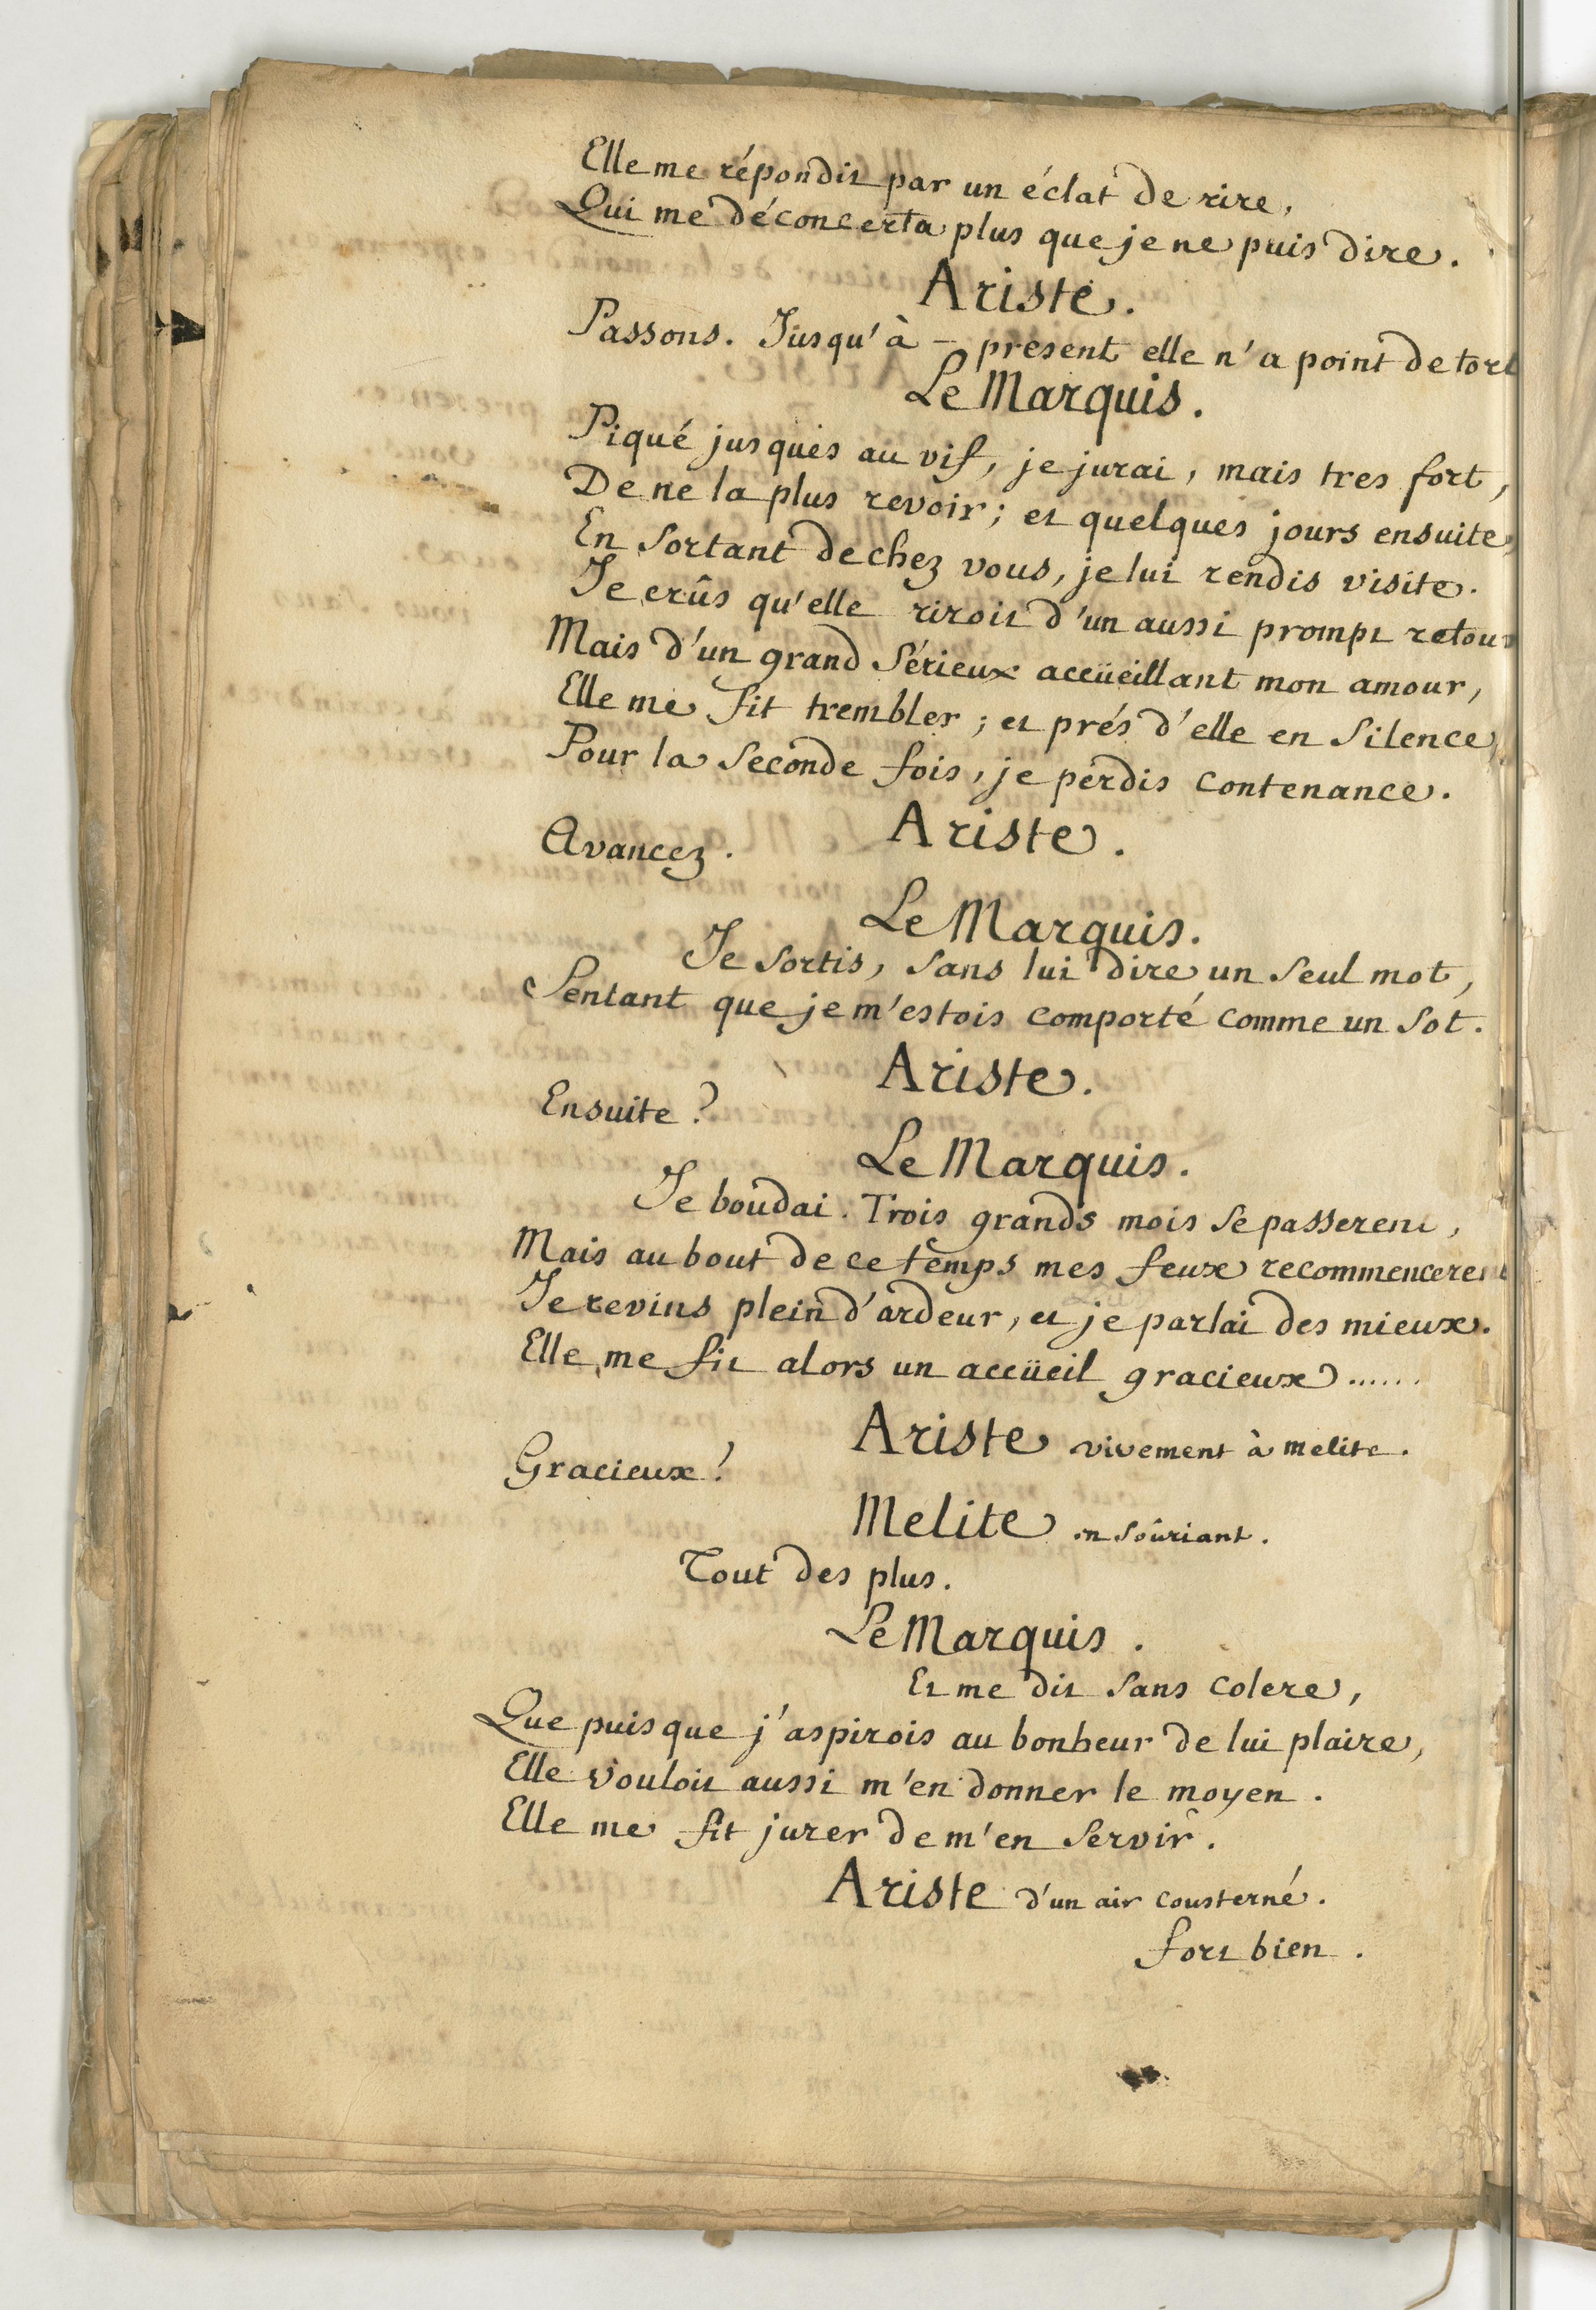 Elle me répondit par un éclat de rire,
Qui me déconcerta plus que je ne puis dire.
Ariste.
Passons. Jusqu'à - present elle n'a point de tort
Le Marquis.
Piqué jusques au vif, je jurai, mais tres fort,
De ne la plus revoir; et quelques jours ensuite,
En sortant de chez vous, je lui rendis visite.
Je crûs qu'elle riroit d'un aussi prompt retour
Mais d'un grand sérieux accüeillant mon amour,
Elle me fit trembler; et prés d'elle en silence,
Pour la seconde fois, je perdis contenance.
Ariste.
Avancez.
Le Marquis.
Je sortis, sans lui dire un seul mot,
Sentant que je m'estois comporté comme un sot.
Ariste.
Ensuite?
Le Marquis.
Je boudai. Trois grands mois se passerent,
Mais au bout de ce temps mes feux recommencerent
Je revins plein d'ardeur, et je parlai des mieux.
Elle me fit alors un accüeil gracieux......
Ariste vivement à melite.
Gracieux!
Melite en soûriant.
Tout des plus.
Le Marquis.
Et me dit sans colere,
Que puisque j'aspirois au bonheur de lui plaire,
Elle vouloit aussi m'en donner le moyen.
Elle me fit jurer de m'en servir.
Ariste d'un air consterné.
fort bien.